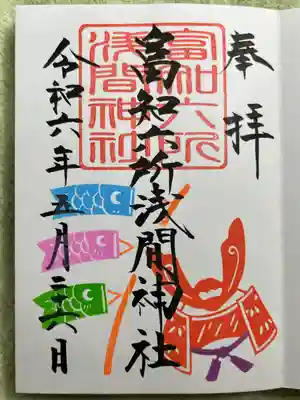 奉拝
富知六所浅間神社
富知六所
浅間神社
令和六年五月二六日